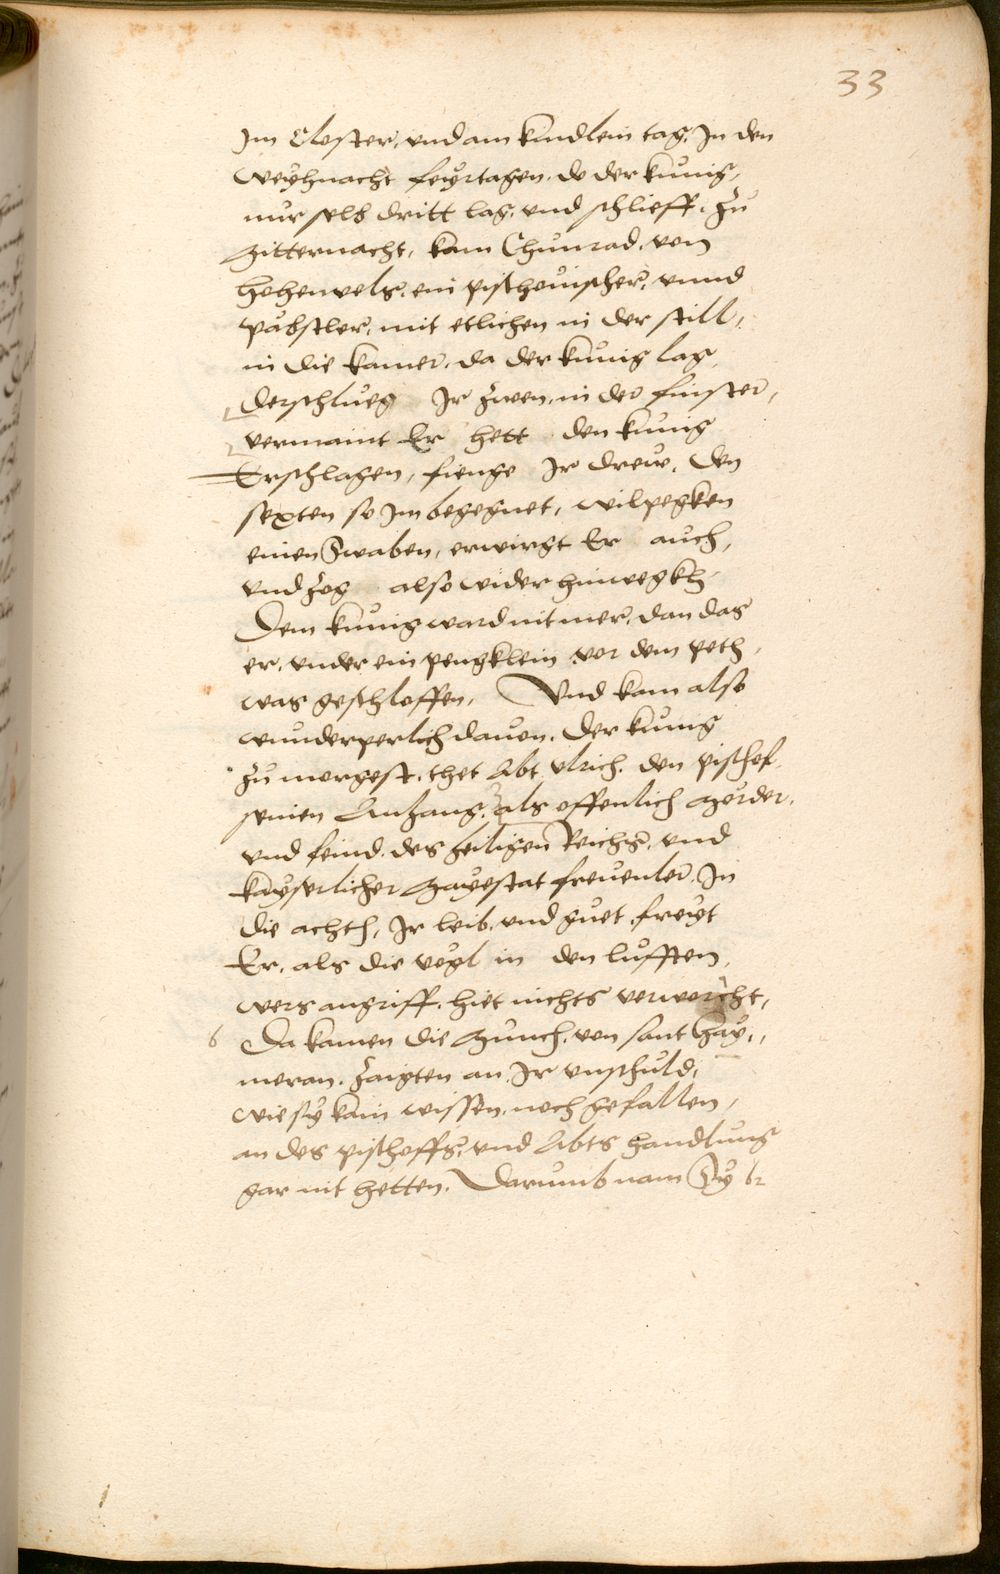 33
Im Closter, vnd am kindlein tag, In den
weyhnacht feyrtagen, do der kunig,
nur selb dritt lag, vnd schlieff, zu
Mitternacht, kam Chunrad, von
Hohenvels, ein pischouischer, vnnd
päbstler, mit etlichen in der still,
in die kamer, da der kunig lag,
derschlueg Ir zwen, in der finster,
vermaint Er hett den kunig
Erschlagen, fienge Ir drew, den
sexten so Im begegnet, wilpegken
einen Swaben, erwirgt Er auch,
vnd zog also wider hinwegkh
Dem kunig ward nit mer, dan das
er, vnder ein pengklein vor dem peth,
was geschloffen, Vnd kam also
wunderperlich dauon, der kunig
zu morgest, thet Abt Vlrich, den pischof,
seinen Anhang, als offenlich Mörder,
vnd feind, des heiligen Reichs, vnd
kayserlicher Mayestat freuenler, In
die achth, Ir leib, vnd guet, freyt
Er, als die vogl in den lufften,
wers angriff, hiet nichts verworcht,
6 Da kamen die Munch, von sant Hay,,
meran, zaigten an, Ir vnschuld,
wie sy kain wissen, noch gefallen,
an des pischoffs, vnd Abts handlung
gar nit hetten, Darumb nam Sy